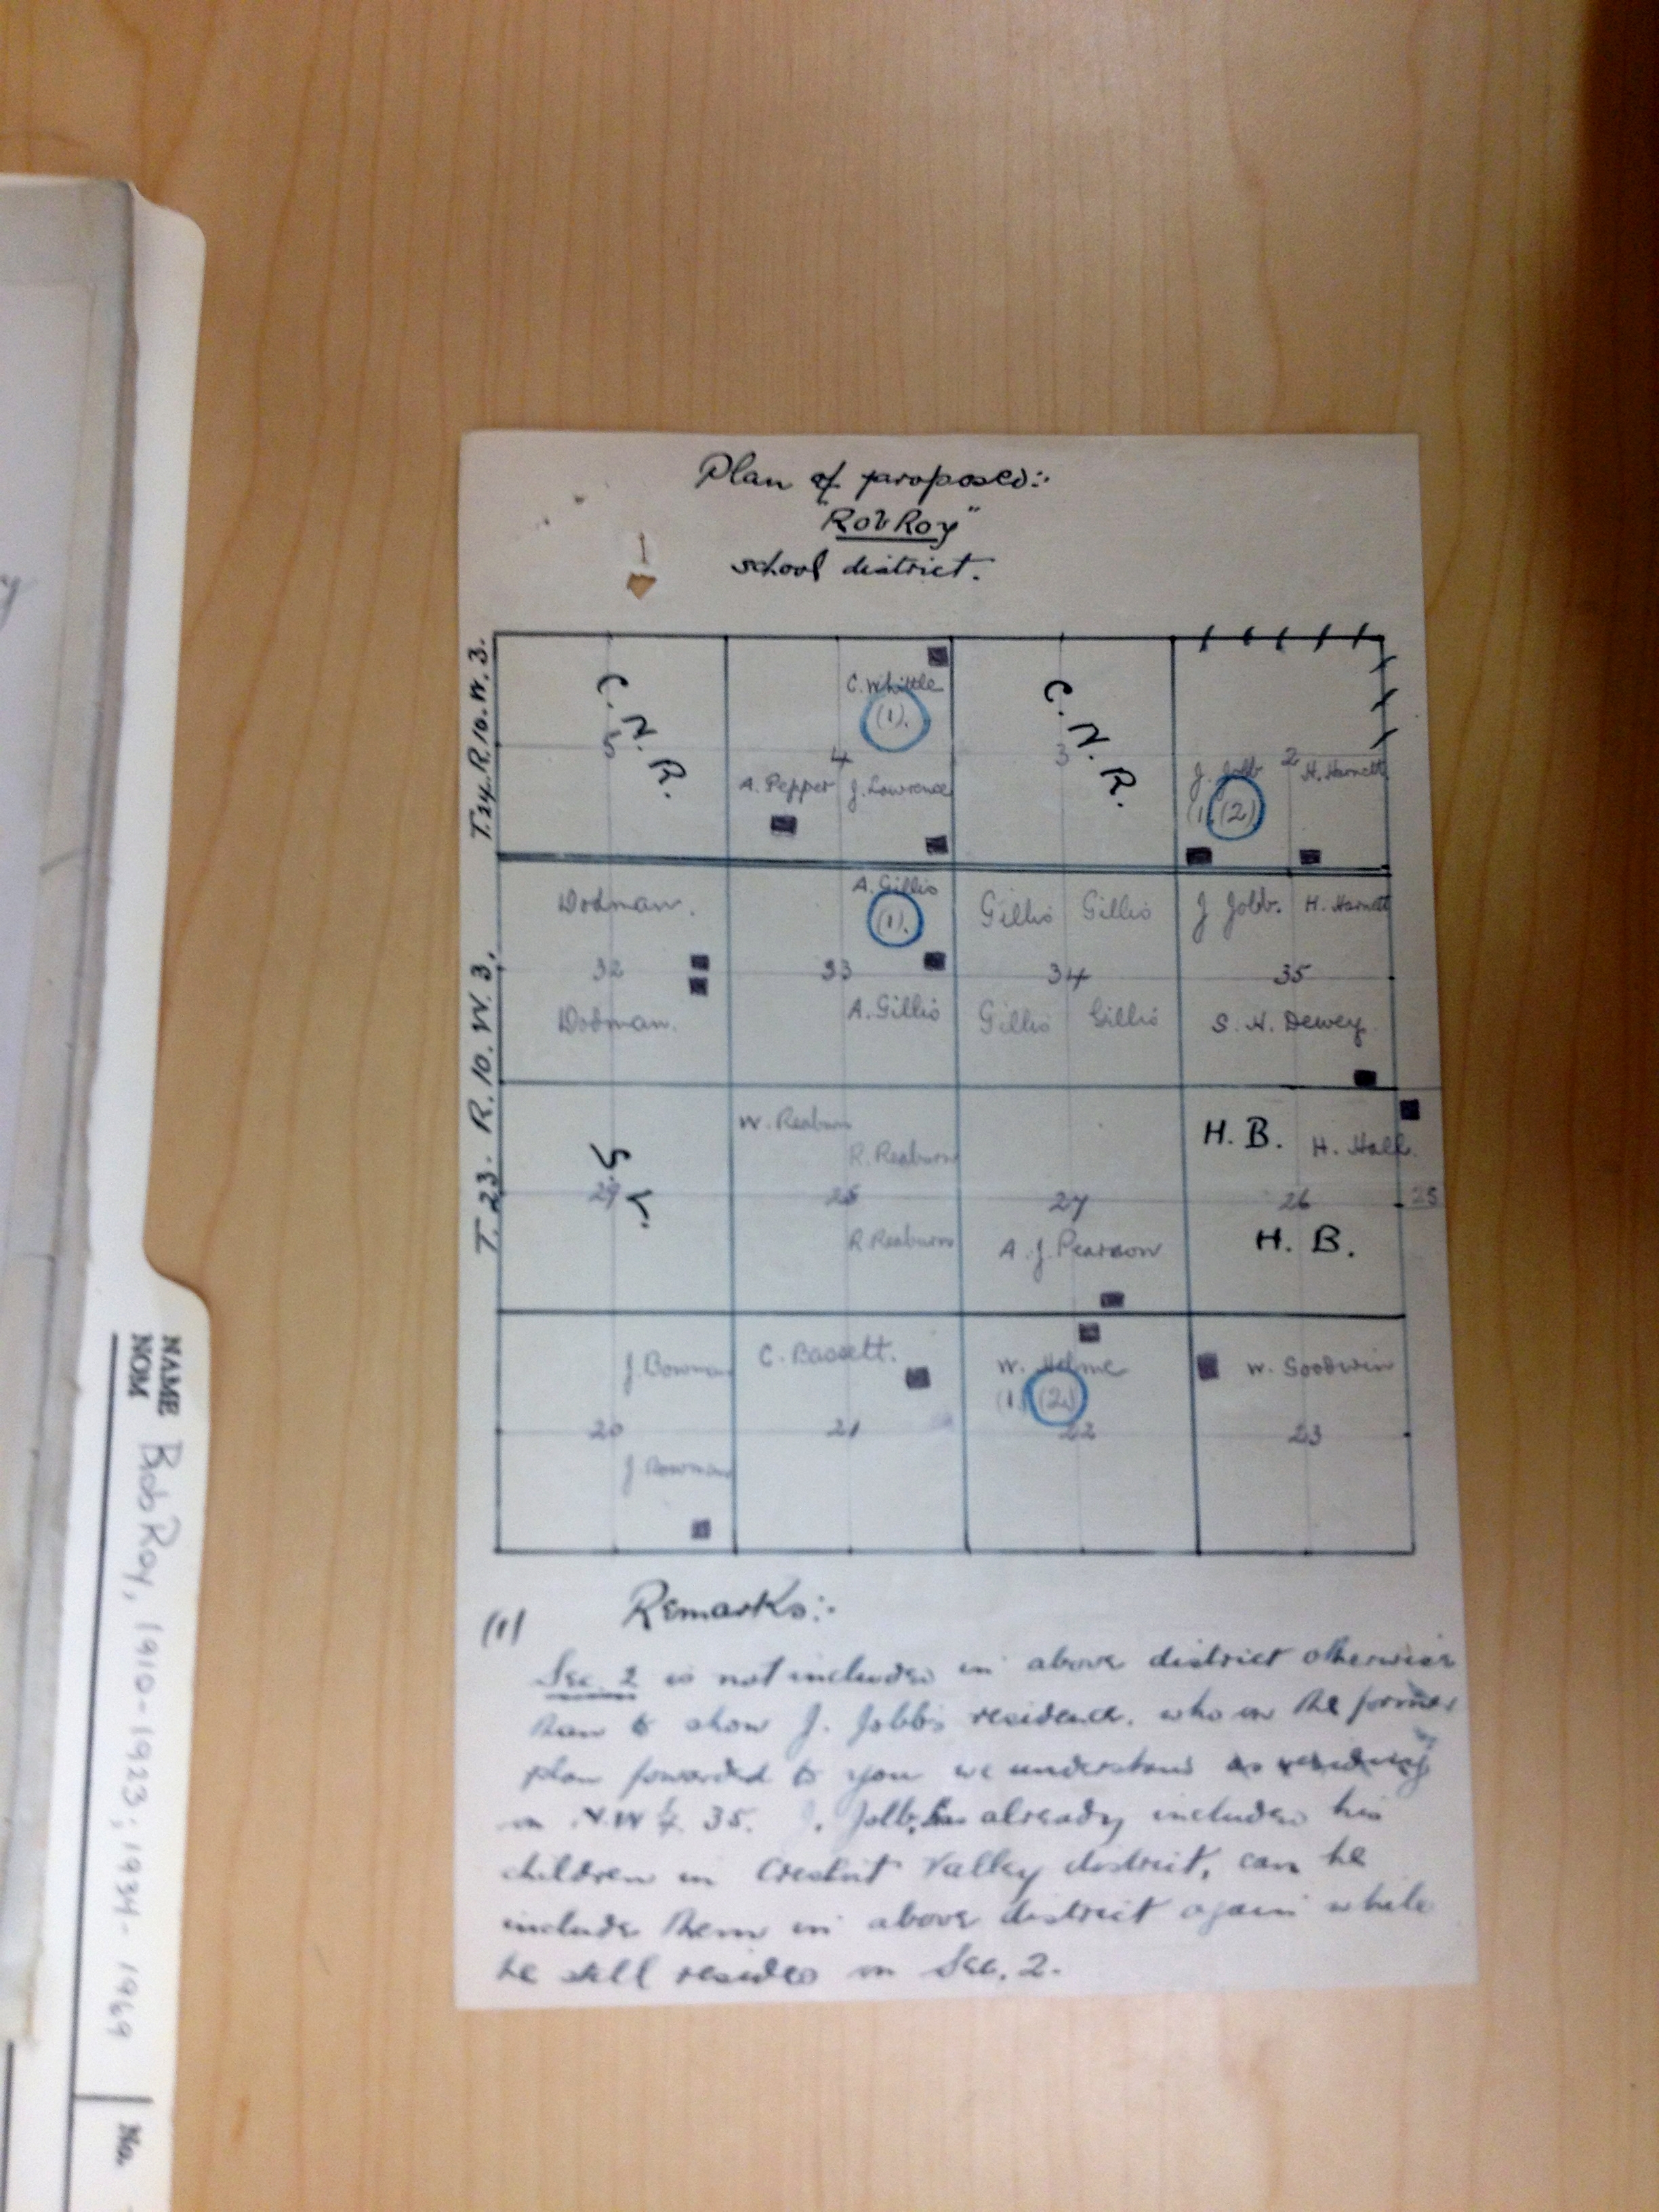 Plan of proposed:-
"Rob Roy"
school district.
T. 24. R. 10. W. 3.
C. N. R.
5
C. Whittle
(1).
4
A. Pepper
J. Lawrence
C. N. R.
3
J. Jobb
(1) (2)
2
H. Harnett
T. 23. R. 10. W. 3.
Dodman.
32
Dodman.
A. Gillis
(1).
33
A. Gillis
Gillis Gillis
34
Gillis Gillis
J Jobb. H. Harnett
35
S. H. Dewey.
S. L.
29
W. Reaburn
R. Reaburn
28
R. Reaburn
27
A. J. Pearson
H. B. H. Hall.
26
25
H. B.
J. Bowman
20
J. Bowman
C. Bassett.
21
W. Helme
(1) (2)
22
W. Goodwin
23
(1) Remarks:-
Sec. 2 is not included in above district otherwise
than to show J. Jobb's residence, who on the former
plan fowarded to you we understand as residing
on N.W ¼ 35. J. Jobb, has already included his
children in Valley district, can he
include them in above district again while
he still resides on Sec. 2.
NAME
NOM
Rob Roy, 1910-1923; 1934-1969
No.
y